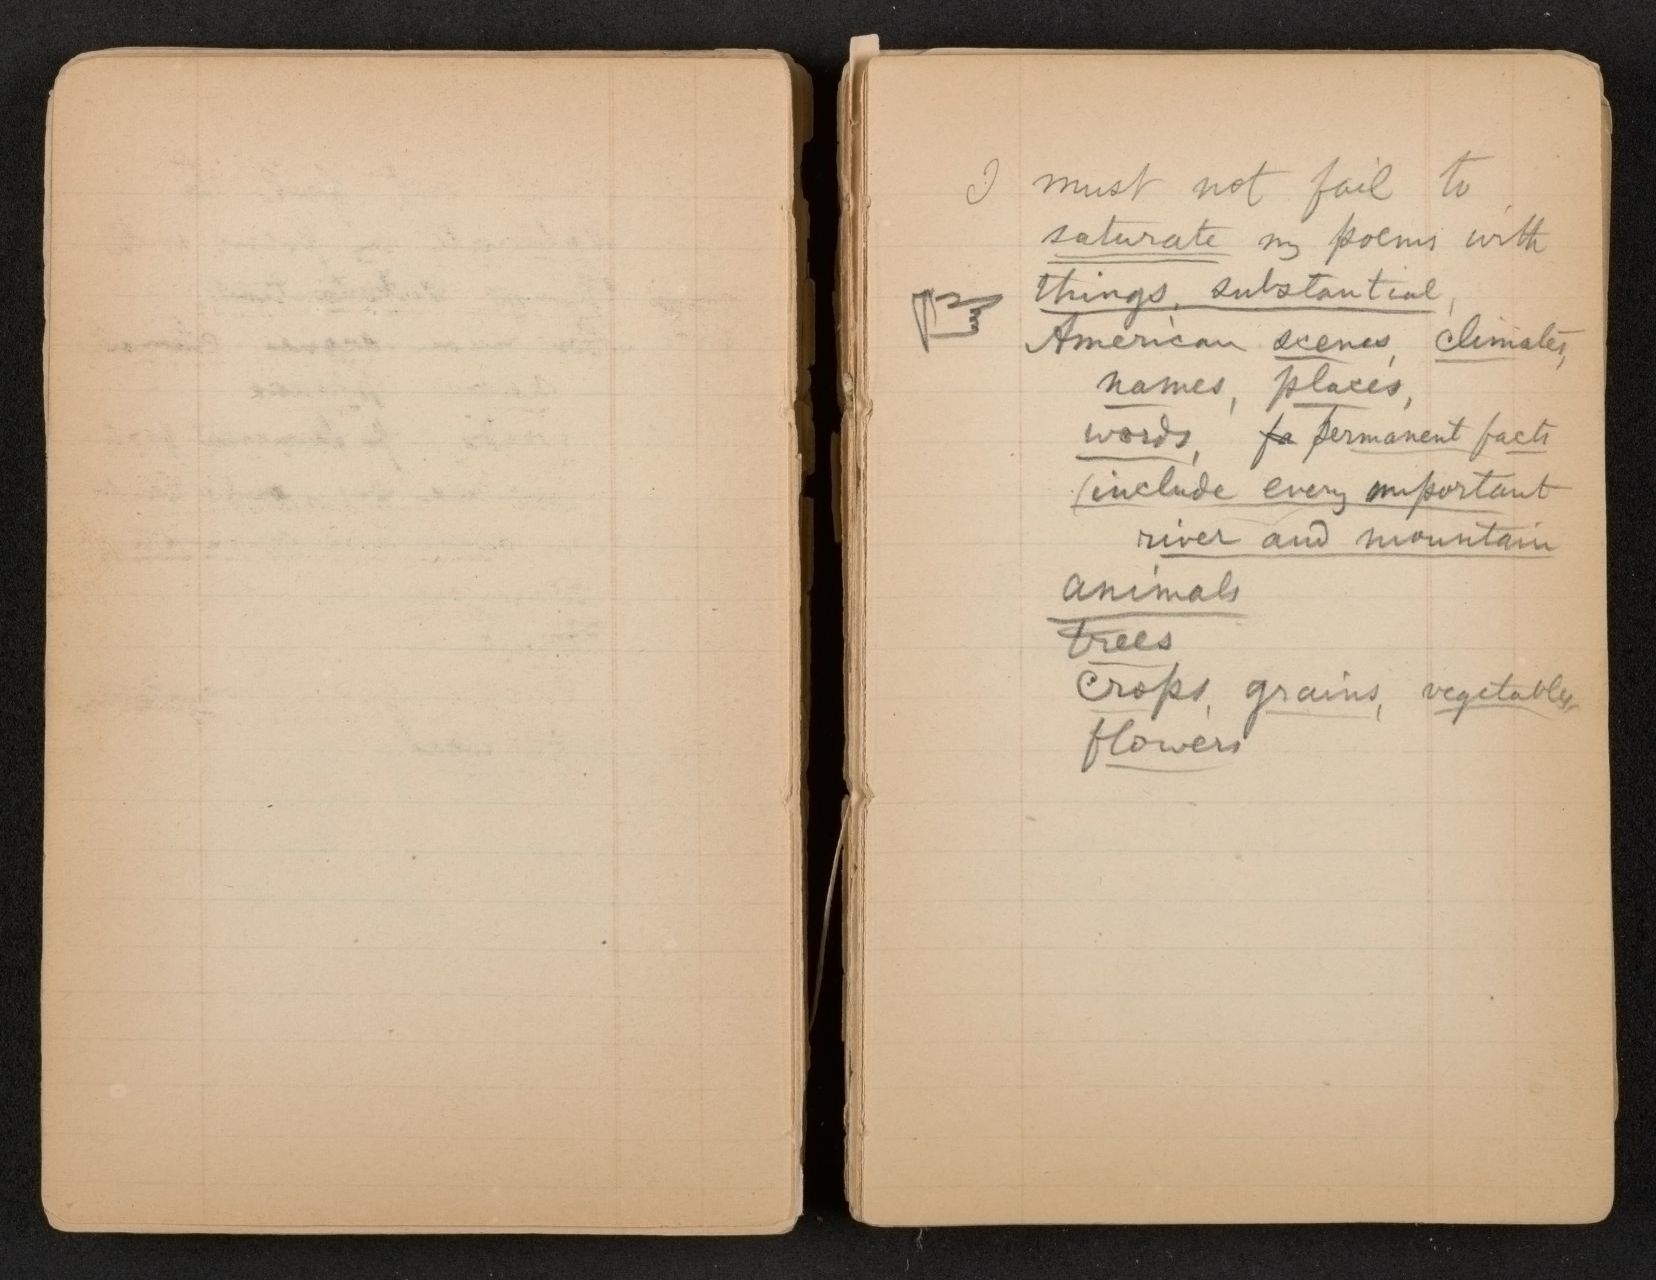 I must not fail to
saturate my poems with
things, substantial,
American scenes, climates,
names, places,
words, fa permanent facts
(include every important
river and mountain
animals
trees
crops, grains, vegetables,
flowers